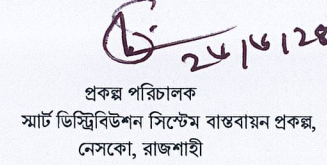 ২৮/৮/২৪
প্রকল্প পরিচালক
স্মার্ট ডিস্ট্রিবিউশন সিস্টেম বাস্তবায়ন প্রকল্প,
নেসকো, রাজশাহী